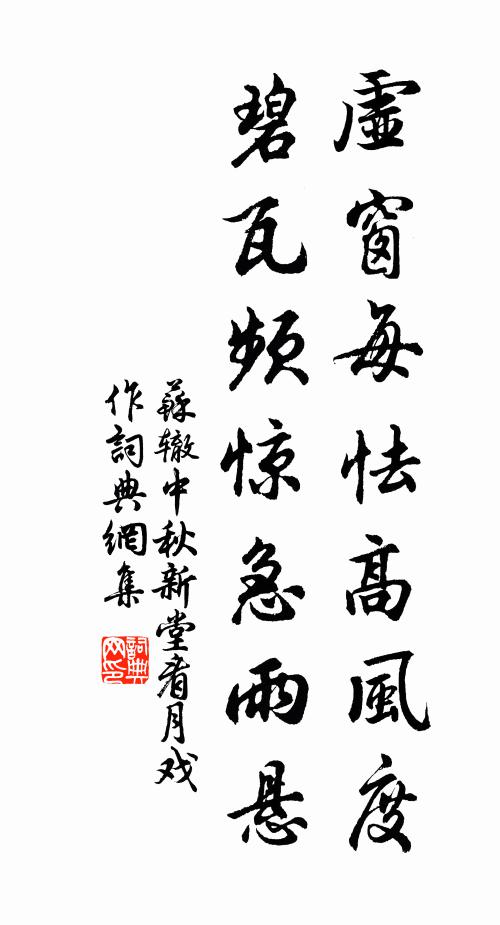 虛窗每怯高風度
碧瓦頻惊急雨悬
蘇辙中秋新堂看月戏
作詞典網集
詞典
网印